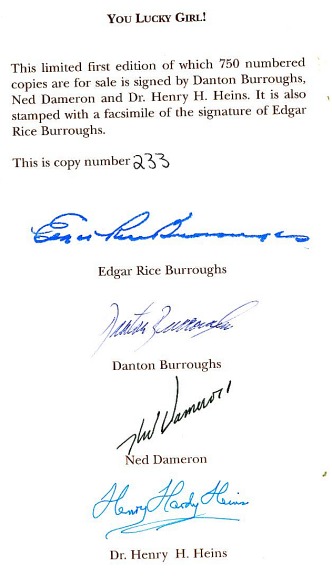 YOU LUCKY GIRL!
This limited first edition of which 750 numbered
copies are for sale is signed by Danton Burroughs,
Ned Dameron and Dr. Henry H. Heins. It is also
stamped with a facsimile of the signature of Edgar
Rice Burroughs.
This is copy number 233
Edgar Rice Burroughs
Edgar Rice Burroughs
Danton Burroughs
Danton Burroughs
Ned Dameron
Ned Dameron
Henry Hardy Heins
Dr. Henry H. Heins